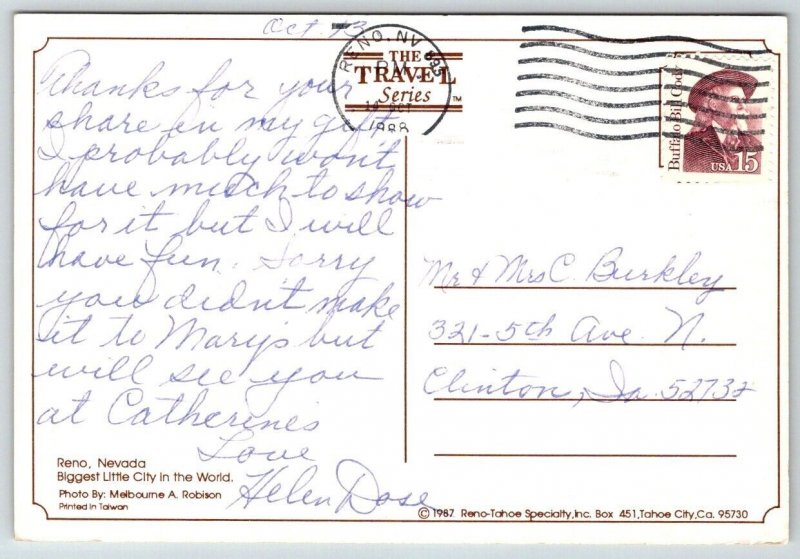 Oct. 13
RENO, NV 895
PM
OCT
1988
THE
TRAVEL
Series
TM
Buffalo Bill Cody
USA 15
Thanks for your
share in my gift
I probably won't
have much to show
for it but I will
have fun. Sorry
you didn't make
it to Marys but
will see you
at Catherines
Love
Helen Dose
Mr & Mrs C. Burkley
321-5th Ave. N.
Clinton, Ia. 52732
Reno, Nevada
Biggest Little City in the World.
Photo By: Melbourne A. Robison
Printed in Taiwan
© 1987 Reno-Tahoe Specialty, Inc. Box 451, Tahoe City, Ca. 95730